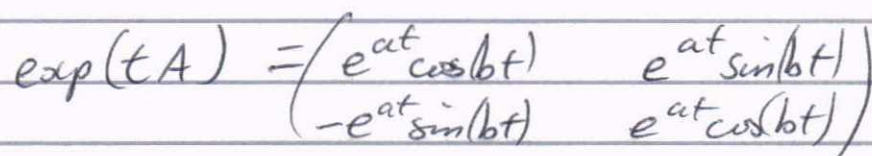 exp(tA) = ( e^{at} cos(bt)   e^{at} sin(bt)
-e^{at} sin(bt)   e^{at} cos(bt) )